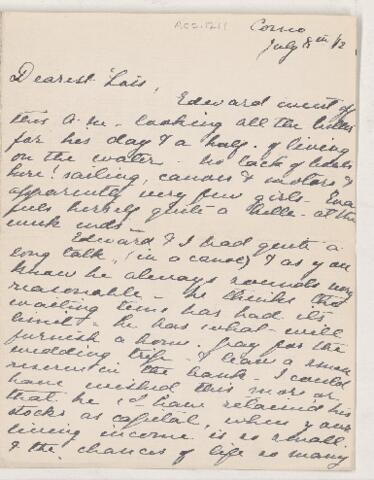 ACC. 1211
Como
July 8th/12
Dearest Lois,
Edward went off
this a.m. looking all the better
for his day & a half of living
on the water. No lack of
here! sailing, canoes & motors &
apparently very few girls. Eva
feels herself quite a belle at the
week ends.
Edward & I had quite a
long talk, (in a canoe) & as you
know he always sounds very
reasonable - he thinks this
waiting time has had its
limit - he has what will
furnish a home, pay for the
wedding trip & leave a small
reserve in the bank. I could
have wished this more or
that he have retained his
stocks as capital, when your
living income is so small
& the chances of life so many